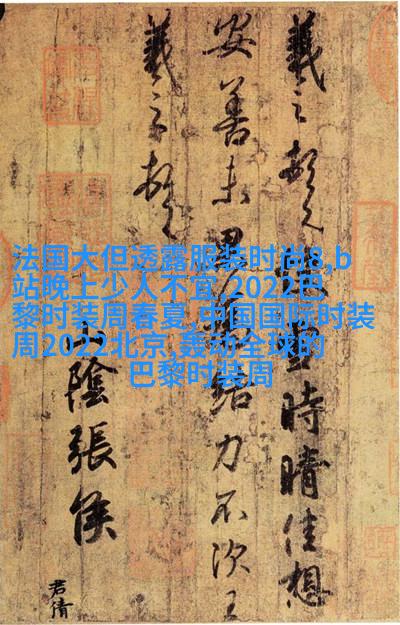 法国大但透露服装时尚8,b
站晚上少人不宜,2022巴
黎时装周春夏,中国国际时装
周2022北京,轰动全球的
巴黎时装周
羲之頓首快雪時晴佳想
安善未果為結力不次王
羲之頓首
山陰張侯
君倩